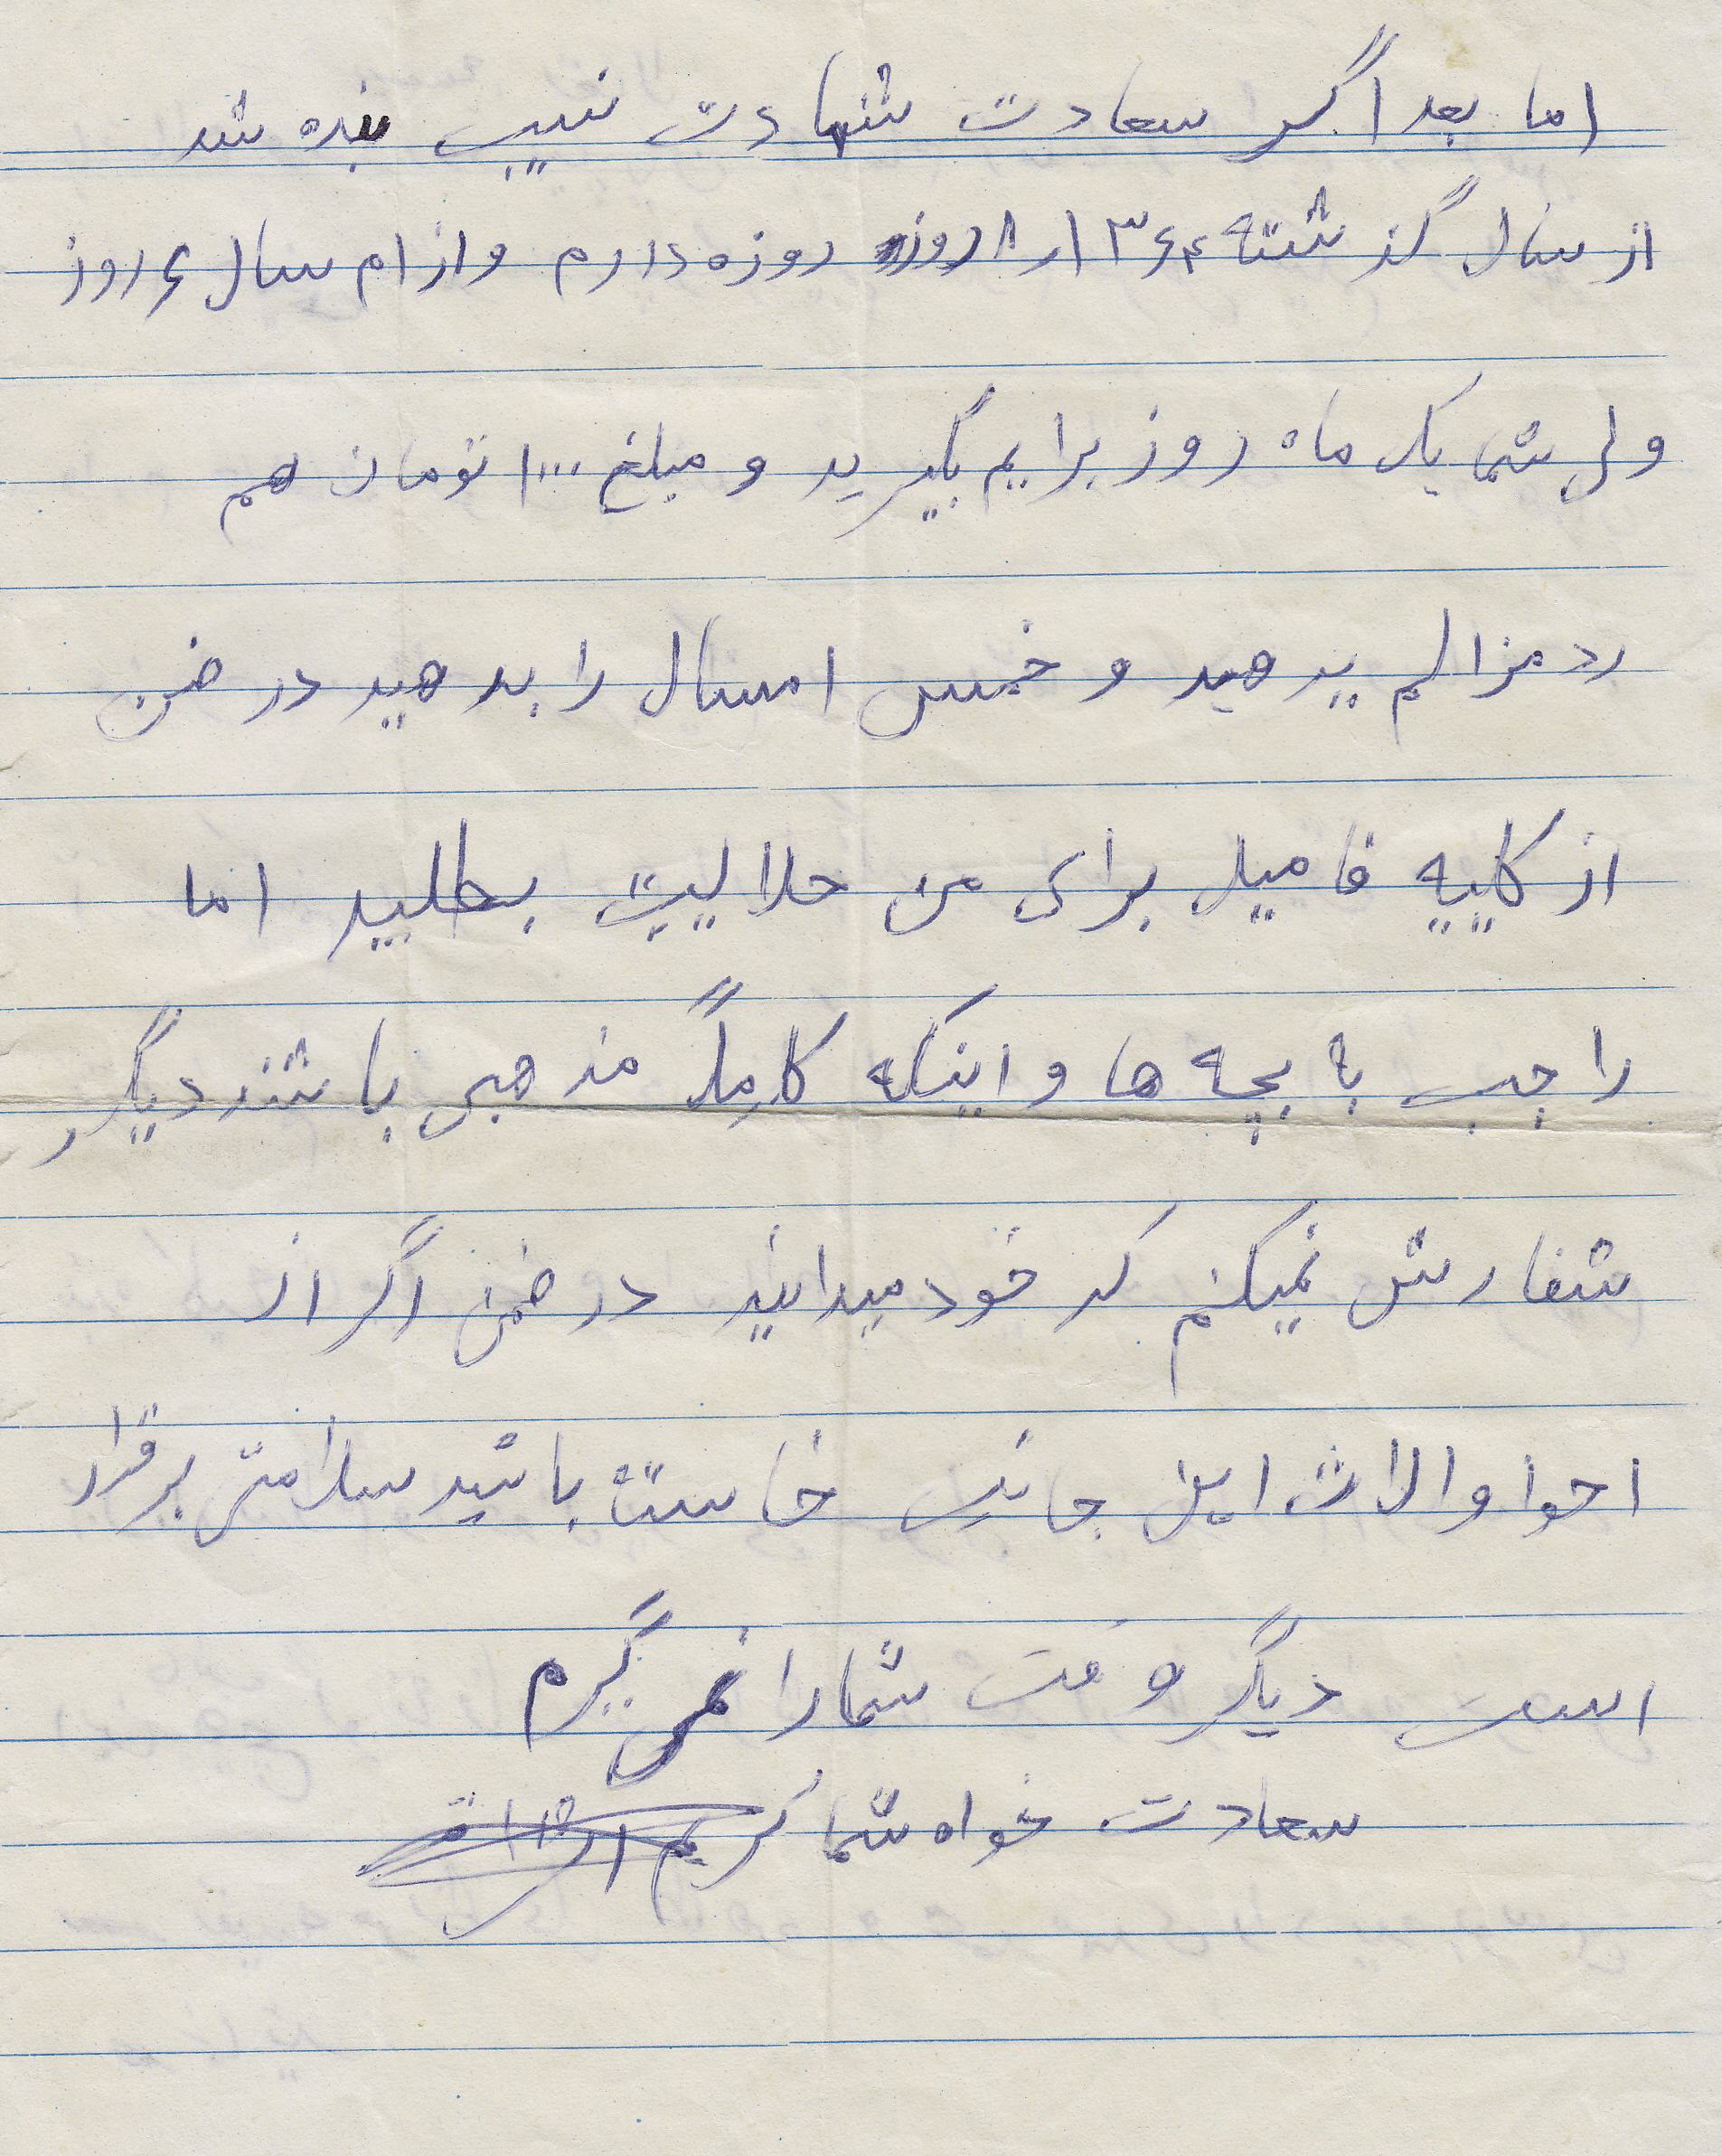 اما بعد اگر سعادت شهادت نسیب بنده شد
از سال گذشته ۱۳۶۴ روزه دارم و از ام سال ۶ روز
ولی شما یک ماه روز برایم بگیرید و مبلغ ۱۰۰۰ تومان هم
رد مزالم بدهید و خمس امسال را بدهید در ضمن
از کلیه فامیل برای من حلالیت بطلبید اما
راجب با بچه ها و اینکه کاملاً مذهبی باشند دیگر
شفارش نمیکنم که خود میدانید در ضمن اگر از
احوا والات این جانب خاسته باشید سلامتی برقرار
است دیگر وقت شما را نمی گیرم
سعادت خواه شما کریم